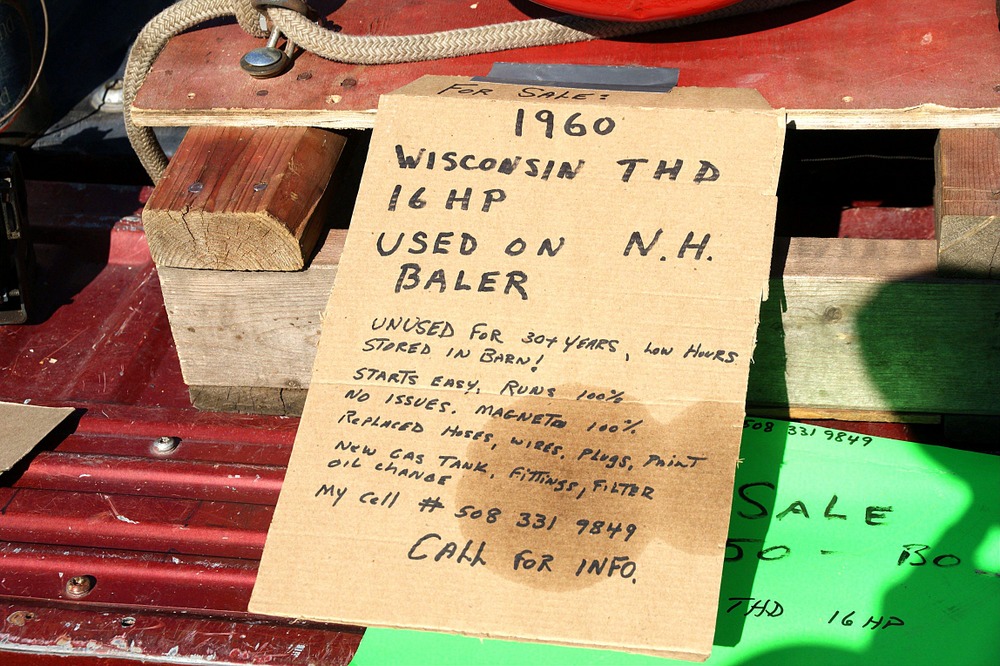 FOR SALE:
1960
WISCONSIN THD
16 HP
USED ON N.H.
BALER
UNUSED FOR 30+ YEARS, LOW HOURS
STORED IN BARN!
STARTS EASY. RUNS 100%
NO ISSUES. MAGNETO 100%.
REPLACED HOSES, WIRES, PLUGS, POINT
NEW GAS TANK, FITTINGS, FILTER
OIL CHANGE
MY CELL # 508 331 9849
CALL FOR INFO.
508 331 9849
SALE
50 - BO
THD 16 HP